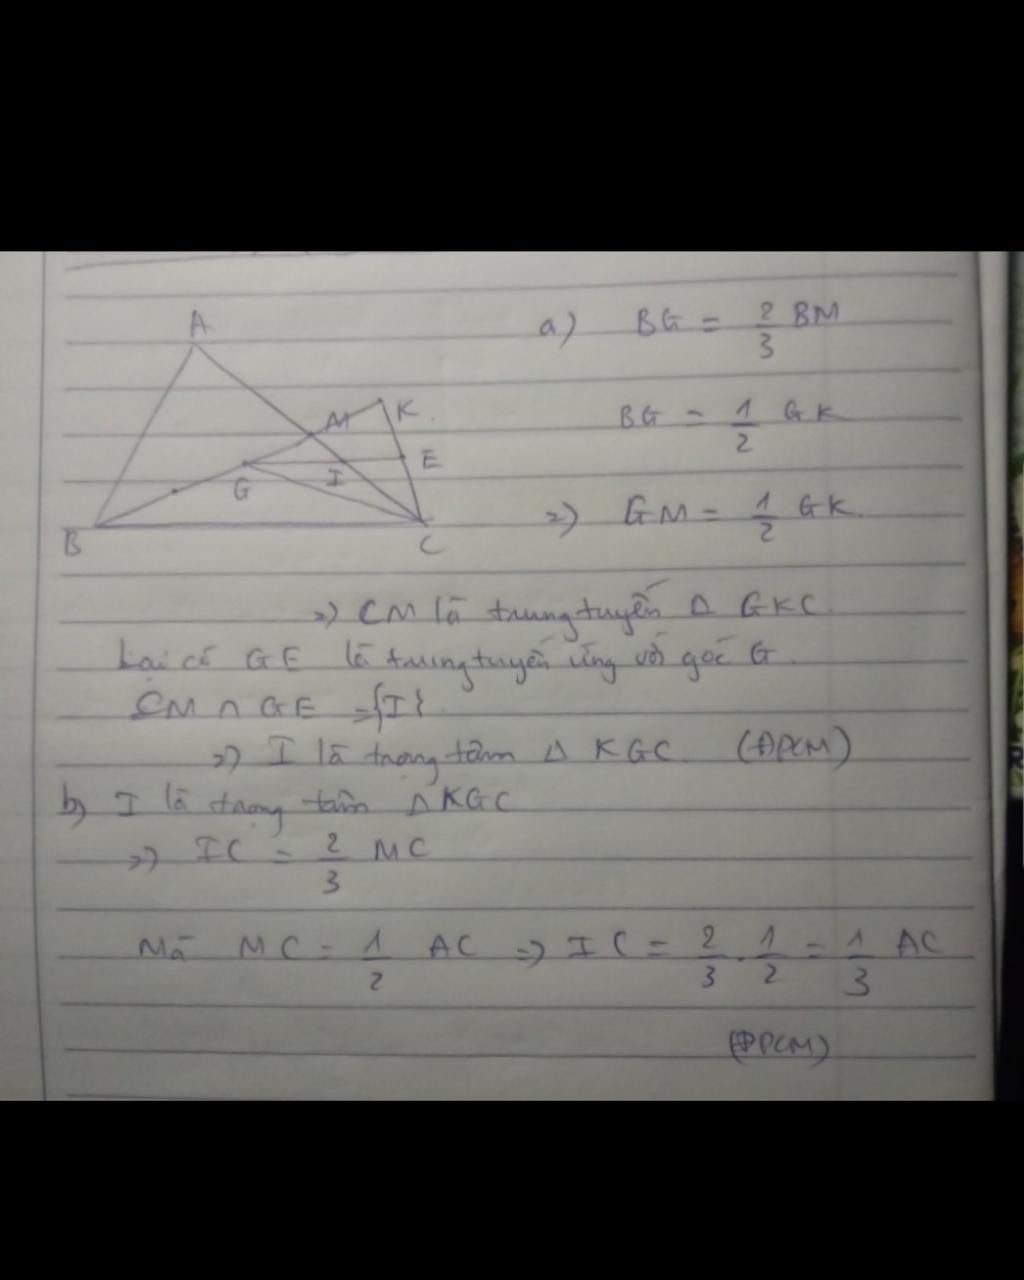 A
M
K.
E
G
I
B
C
a) BG = 2/3 BM
BG = 1/2 GK
=) GM = 1/2 GK.
=) CM là trung tuyến Δ GKC.
Lại có GE là trung tuyến ứng với góc G.
CM ∩ GE = {I}.
=) I là trọng tâm Δ KGC. (ĐPCM)
b) I là trọng tâm Δ KGC
=) IC = 2/3 MC
Mà MC = 1/2 AC =) IC = 2/3 . 1/2 = 1/3 AC
(ĐPCM)